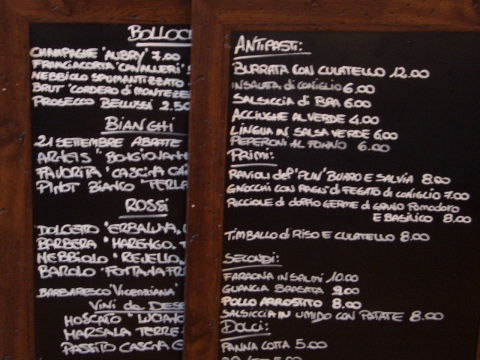 BOLLOC
CHAMPAGNE "AUBRY" 7.00
FRANCIACORTA "CAVALLERI"
NEBBIOLO SPUMANTIZZATO
BRUT "CORDERO DI MONTEZE
PROSECCO BELLUSSI 2.50
BIANCHI
21 SETTEMBRE ABATTE
ARNEIS "BONGIOVAN
FAVORITA "CASCINA CA
PINOT BIANCO "TERLA
ROSSI
DOLCETTO "ERBALUNA,
BARBERA "MARENGO,
NEBBIOLO "REJELLO,
BAROLO "FONTANAFR
BARBARESCO "VICENZIANA"
VINI DA DESSE
MOSCATO "LUCIANO
MARSALA TERRE
PASSITO CASCINA G
ANTIPASTI:
BURRATA CON CULATELLO 12.00
INSALATA di CONIGLIO 6.00
SALSICCIA di BRA 6.00
ACCIUGHE AL VERDE 4.00
LINGUA IN SALSA VERDE 6.00
PEPERONI AL TONNO 6.00
PRIMI:
RAVIOLI del "PLIN" BURRO E SALVIA 8.00
GNOCCHI CON RAGU' di FEGATO di CONIGLIO 7.00
RICCIOLE di doppio GERME di GRANO POMODORO
E BASILICO 8.00
TIMBALLO di RISO E CULATELLO 8.00
SECONDI:
FARAONA IN SALMI 10.00
GUANCIA BRASATA 9.00
POLLO ARROSTITO 8.00
SALSICCIA IN UMIDO CON PATATE 8.00
DOLCI:
PANNA COTTA 5.00